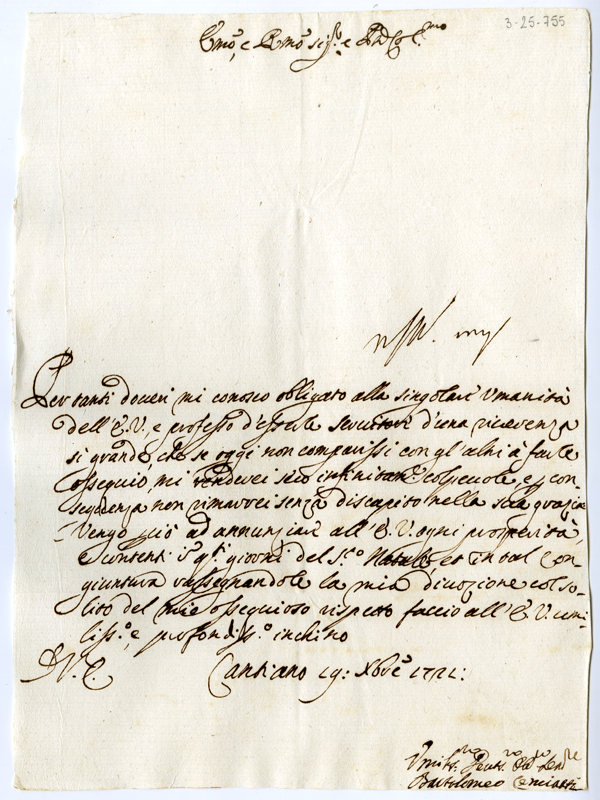 3-25-755
Emo, e Rmo Sigr. e Pne Col.mo
Per tanti doveri mi conosco obligato alla singolare Umanità
dell'E.V., e professo d'esserle servitore d'una riverenza
si grande, che se oggi non comparissi con gl'altri à farle
ossequio, mi renderei seco infinitam.e colpevole, e con-
seguenza non rimarrei senza discapito nella sua grazia
Vengo ciò ad annunziare all'E.V. ogni prosperità,
e contenti i gti giorni del S.to Natale, et in tal con-
giuntura rassegnandole la mia divozione col so-
lito del mio ossequioso rispetto faccio all'E.V. umi-
liss.o, e profondiss.o inchino
D.V.E. Cantiano 19: Xbre 1721:
Umilis. Devts. Obl. Ser.re
Bartolomeo